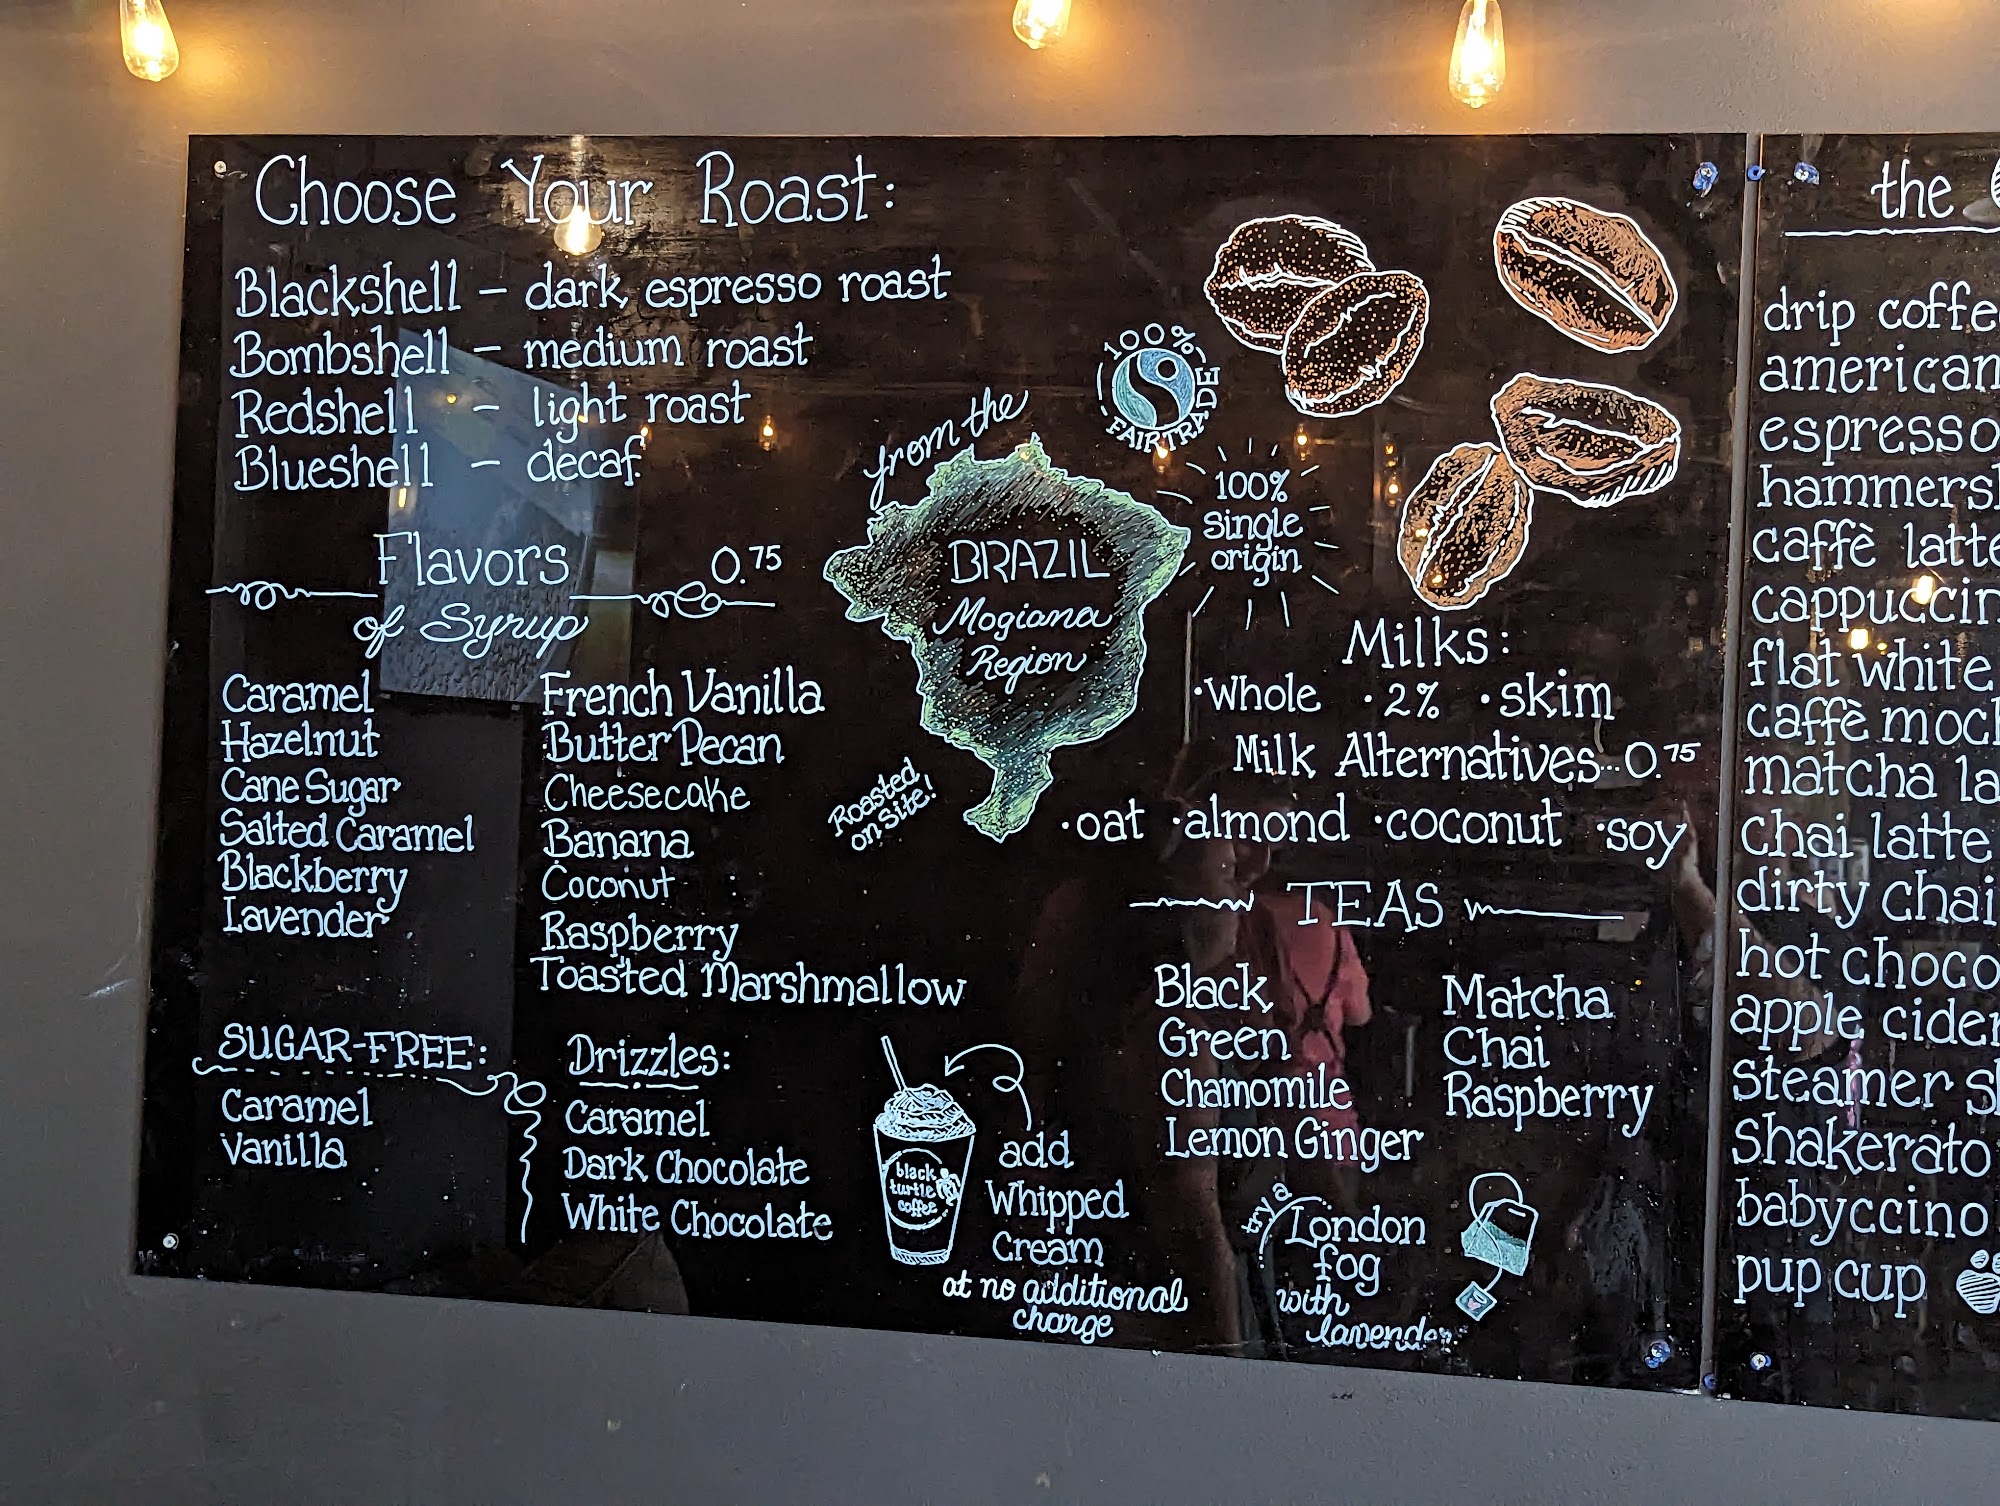 Choose Your Roast:
Blackshell – dark espresso roast
Bombshell – medium roast
Redshell – light roast
Blueshell – decaf
Flavors 0.75
of Syrup
Caramel
Hazelnut
Cane Sugar
Salted Caramel
Blackberry
Lavender
French Vanilla
Butter Pecan
Cheesecake
Banana
Coconut
Raspberry
Toasted Marshmallow
SUGAR-FREE:
Caramel
Vanilla
Drizzles:
Caramel
Dark Chocolate
White Chocolate
black
turtle
coffee
add
Whipped
Cream
at no additional
charge
from the
BRAZIL
Mogiana
Region
Roasted
on site!
100%
FAIRTRADE
100%
single
origin
Milks:
·Whole ·2% ·skim
Milk Alternatives...0.75
·oat ·almond ·coconut ·soy
TEAS
Black
Green
Chamomile
Lemon Ginger
Matcha
Chai
Raspberry
try a
London
fog
with
lavender
the
drip coffe
american
espresso
hammersh
caffè latte
cappuccin
flat white
caffè moch
matcha la
chai latte
dirty chai
hot choco
apple cider
steamer s
shakerato
babyccino
pup cup